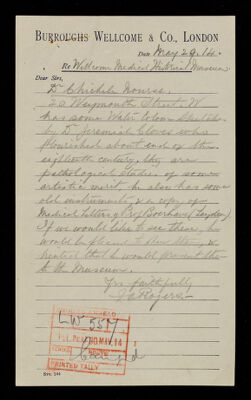 BURROUGHS WELLCOME & Co., LONDON
Date May 29. 14.
Re Wellcome Medical Historical Museum
Dear Sirs,
Dr Chichele Nourse
20 Weymouth Street W
has some Water Colour Sketches
by Dr Jeremiah Cloves who
flourished about end of the
eighteenth century, they are
pathological studies of some
artistic merit he also has some
old instruments, & a copy of
Medical Letters of
If we would like to see these, he
would be pleased to show them, &
hinted that he would present them
to the Museum.
Yrs faithfully
Rogers
LW 557
MAY. 14
PRINTED TALLY